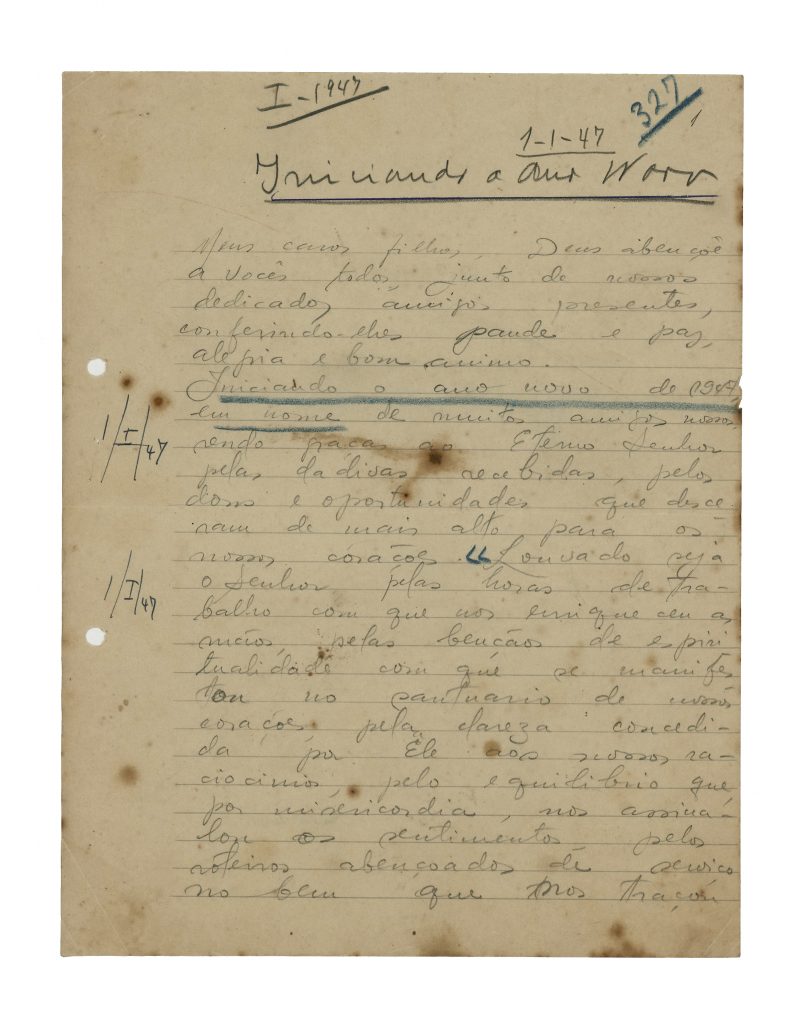 I-1947
327
1
1-1-47
Iniciando o Ano Novo
Meus caros filhos, Deus abençôe
a vocês todos, junto de nossos
dedicados amigos presentes,
conferindo-lhes saude e paz,
alegria e bom animo.
Iniciando o ano novo de 1947,
1/I/47
em nome de muitos amigos nossos,
rendo graças ao Eterno Senhor
pelas dadivas recebidas, pelos
dons e oportunidades que desce-
ram de mais alto para os
nossos corações. «Louvado seja
1/I/47
o Senhor pelas horas de tra-
balho com que nos enriqueceu as
mãos, pelas bençãos de espiri-
tualidade com que se manifes
tou no santuario de nossos
corações, pela clareza concedi-
da por Êle aos nossos ra-
ciocinios, pelo equilibrio que,
por misericordia, nos assina-
lou os sentimentos pelos
roteiros abençoados de serviço
no bem que nos traçou